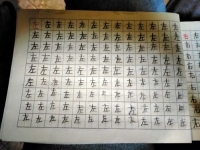 左左左左左左左左左左
左左左左左左左左左左
左左左左左左左左左左
左左左左左左左左左左
左左左左左左左左左左
左左左左左左左左左左
左左左左左左左左左左
左左左左左左左左左左
左左左左左左左左左左